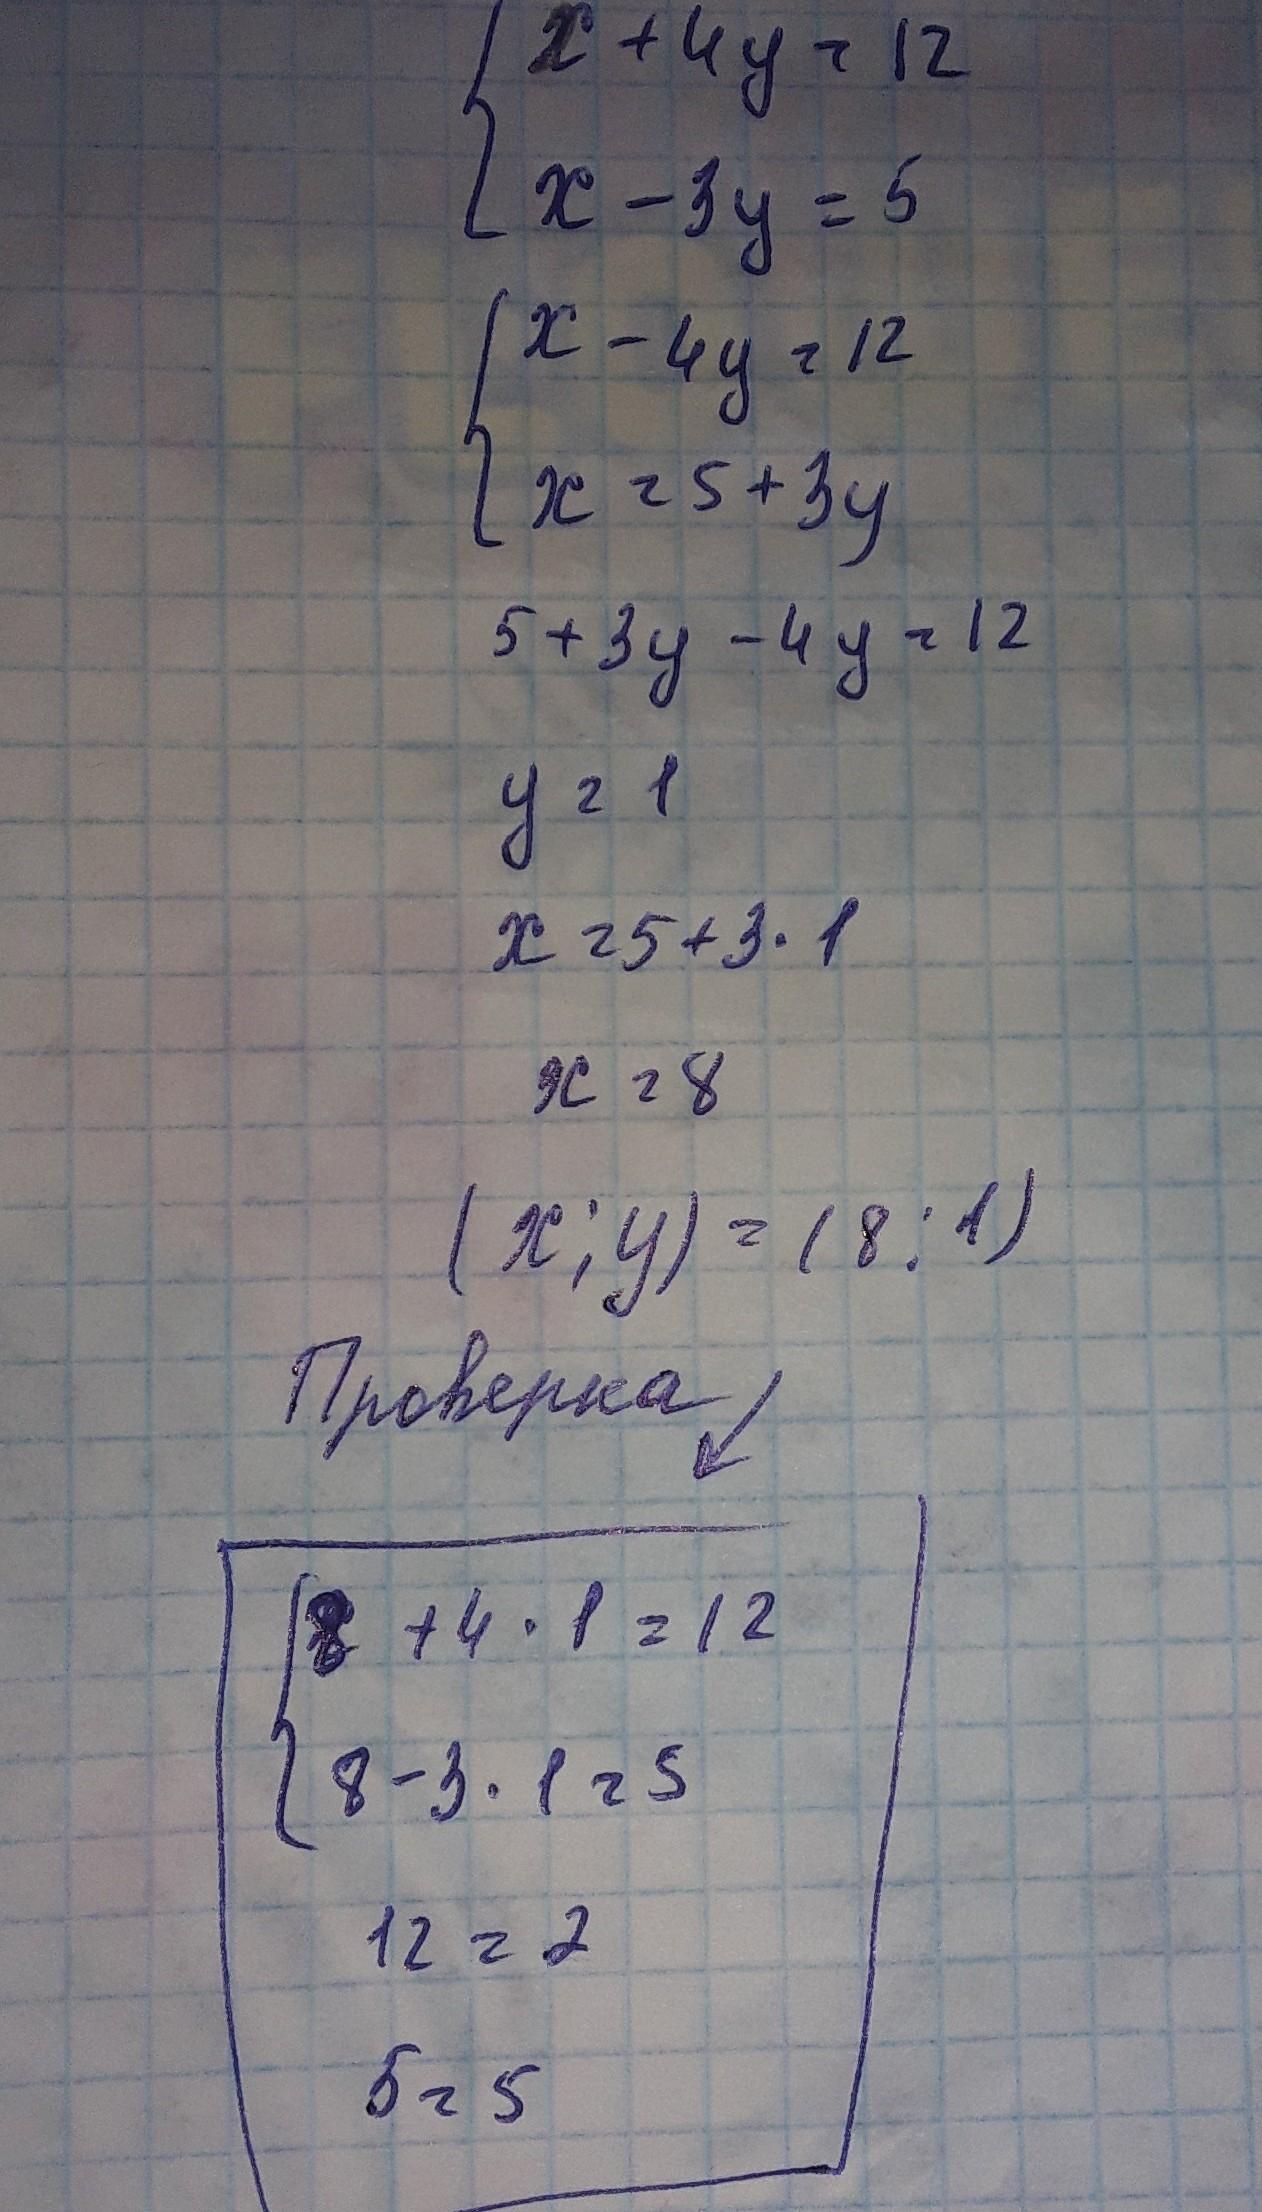 x + 4y = 12
x - 3y = 5
x - 4y = 12
x = 5 + 3y
5 + 3y - 4y = 12
y = 1
x = 5 + 3 · 1
x = 8
(x; y) = (8; 1)
Проверка
8 + 4 · 1 = 12
8 - 3 · 1 = 5
12 = 2
5 = 5